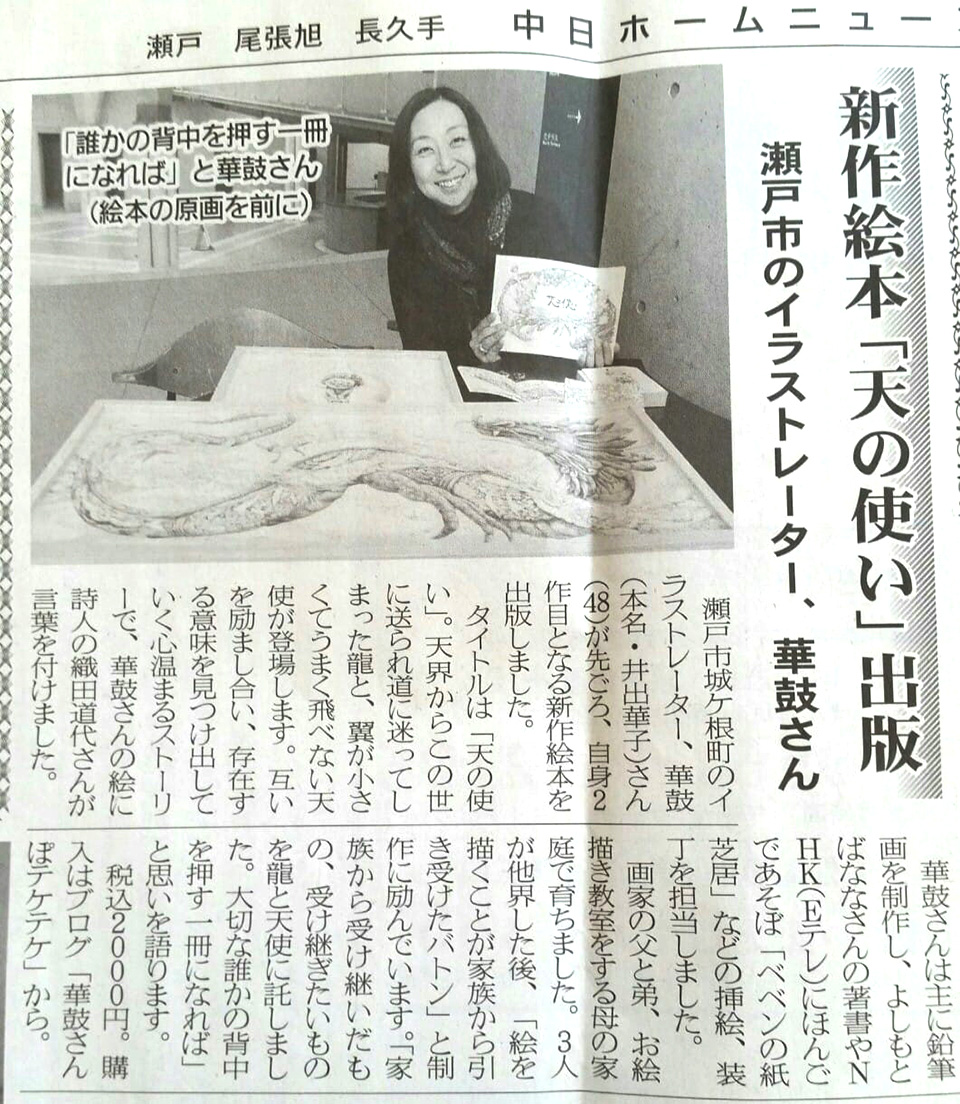 瀬戸 尾張旭 長久手 中日ホームニュー
新作絵本「天の使い」出版
瀬戸市のイラストレーター、華鼓さん
「誰かの背中を押す一冊
になれば」と華鼓さん
(絵本の原画を前に)
瀬戸市城ケ根町のイ
ラストレーター、華鼓
(本名・井出華子)さん
(48)が先ごろ、自身2
作目となる新作絵本を
出版しました。
タイトルは「天の使
い」。天界からこの世
に送られ道に迷ってし
まった龍と、翼が小さ
くてうまく飛べない天
使が登場します。互い
を励まし合い、存在す
る意味を見つけ出して
いく心温まるストーリ
ーで、華鼓さんの絵に
詩人の織田道代さんが
言葉を付けました。
華鼓さんは主に鉛筆
画を制作し、よしもと
ばななさんの著書やN
HK(Eテレ)にほんご
であそぼ「ベベンの紙
芝居」などの挿絵、装
丁を担当しました。
画家の父と弟、お絵
描き教室をする母の家
庭で育ちました。3人
が他界した後、「絵を
描くことが家族から引
き受けたバトン」と制
作に励んでいます。「家
族から受け継いだも
の、受け継ぎたいもの
を龍と天使に託しまし
た。大切な誰かの背中
を押す一冊になれば」
と思いを語ります。
税込2000円。購
入はブログ「華鼓さん
ぽテケテケ」から。